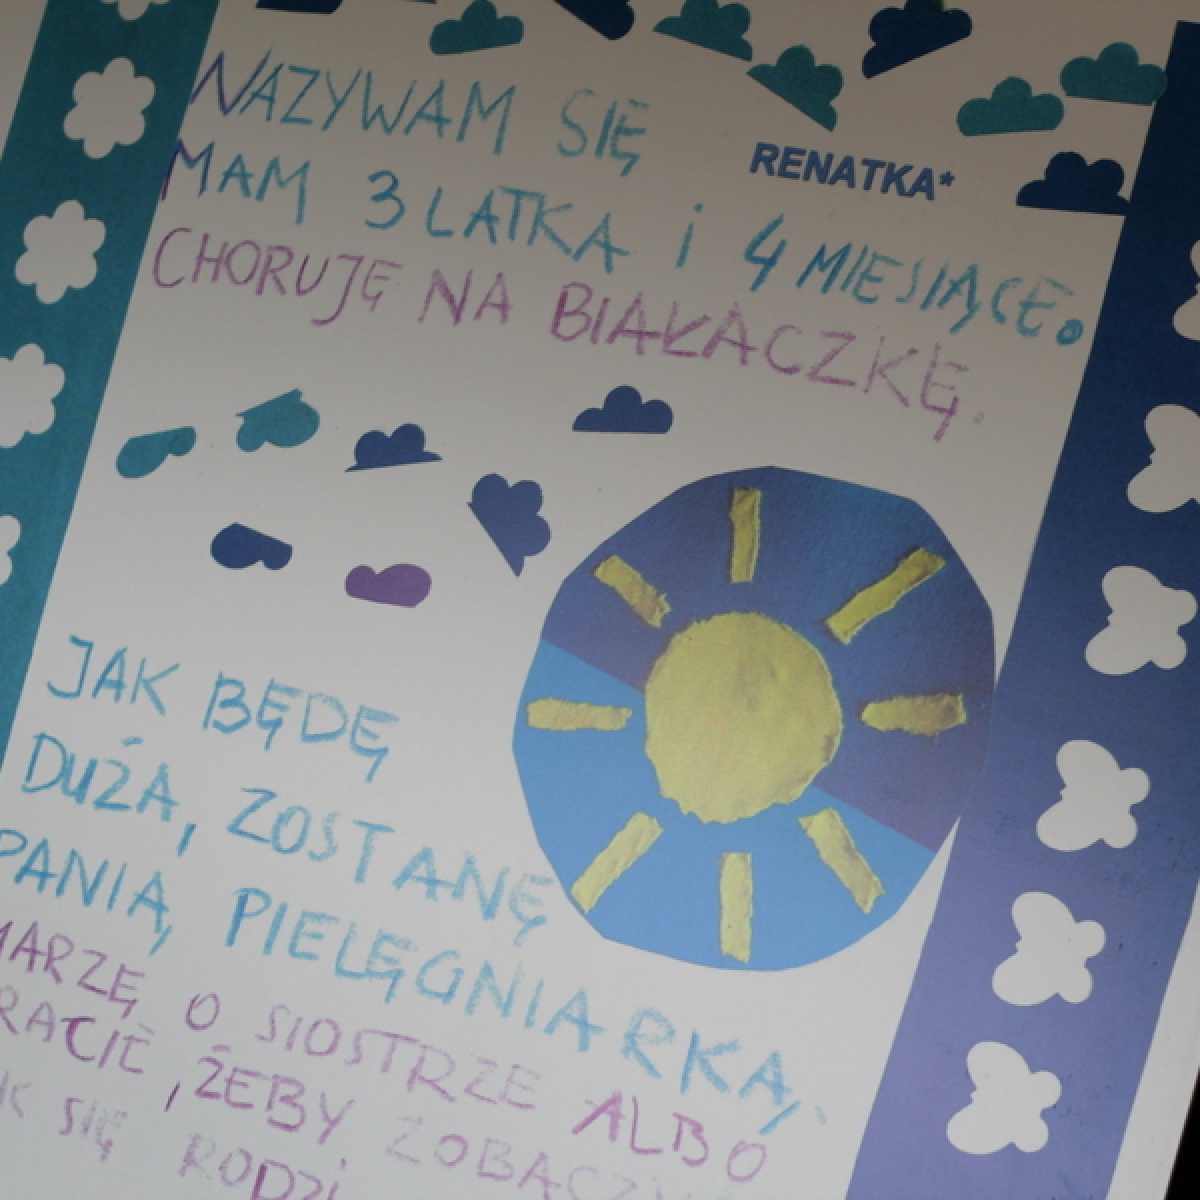 NAZYWAM SIĘ RENATKA*
MAM 3 LATKA i 4 MIESIĄCE.
CHORUJĘ NA BIAŁACZKĘ.
JAK BĘDĘ
DUŻA, ZOSTANĘ
PANIĄ PIELĘGNIARKĄ,
MARZĘ O SIOSTRZE ALBO
RACIE, ŻEBY ZOBACZY
SIĘ RODZI